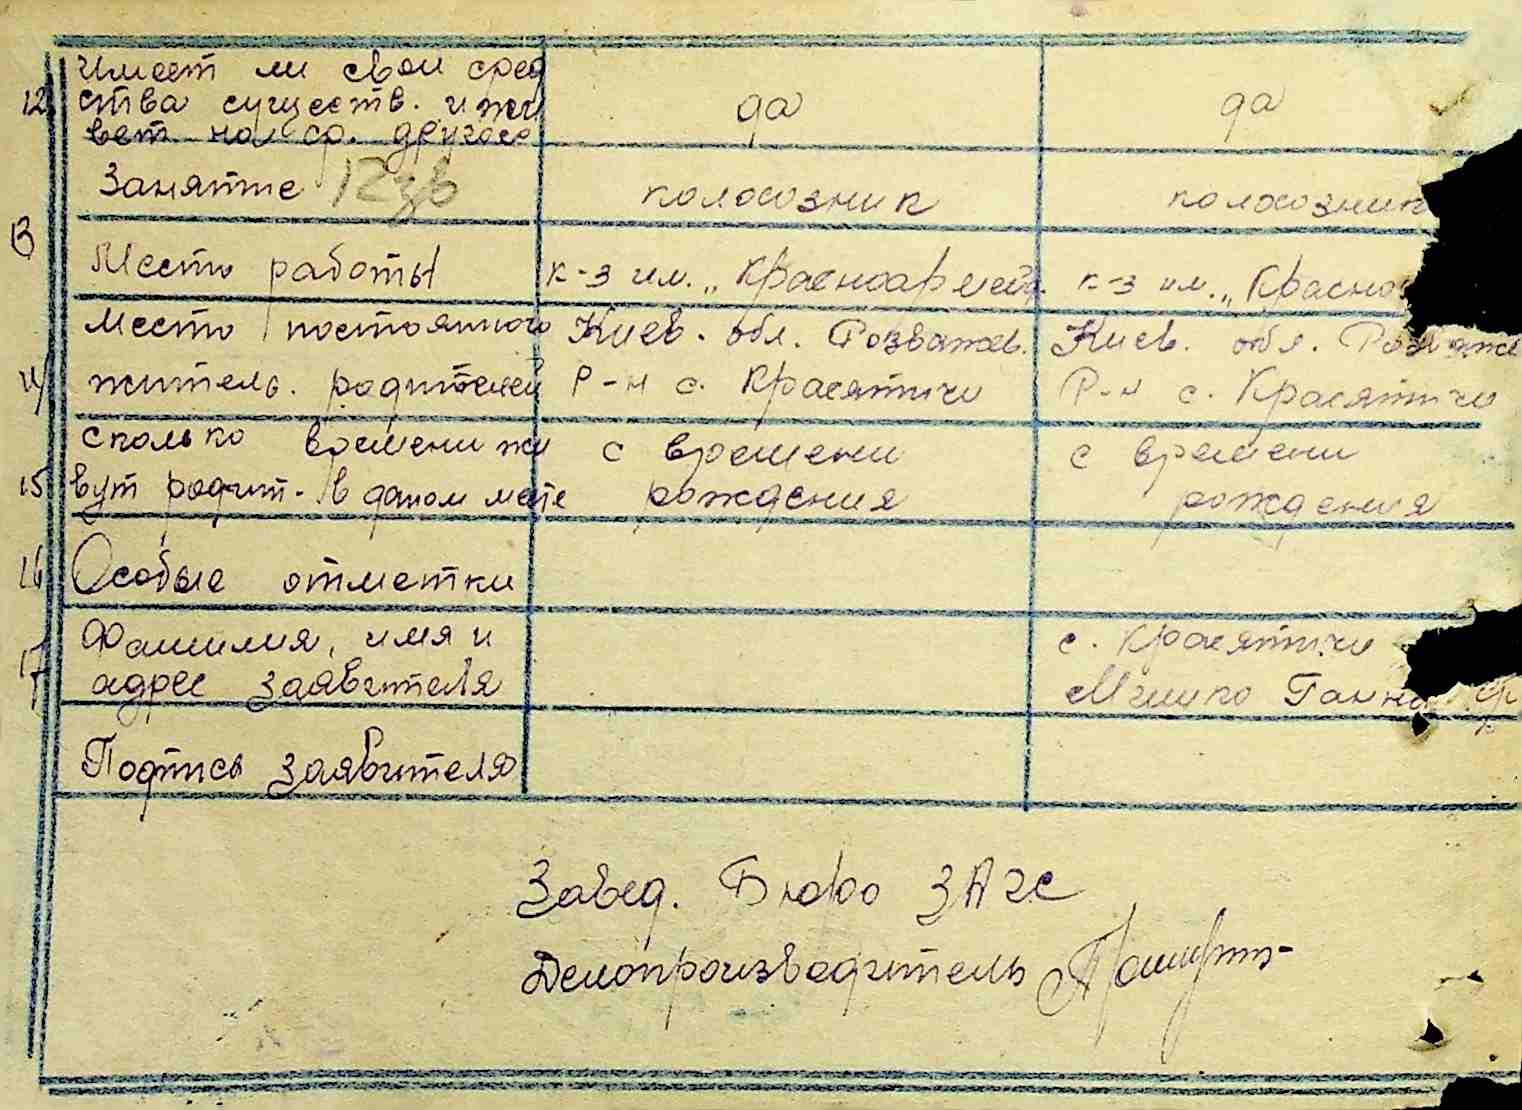 12 Имеет ли свои сред
ства существ. и жи
вет на ср. другого
да
да
13 Занятие
колхозник
колхозник
Место работы
к-з им. „Красноармеец.
к-з им. „Красно
14 Место постоянного
житель. родителей
Киев. обл. Розважев.
Р-н с. Красятичи
Киев. обл. Розваже
Р-н с. Красятичи
15 Сколько времени жи
вут родит. в даном месте
с времени
рождения
с времени
рождения
16 Особые отметки
17 Фамилия, имя и
адрес заявителя
с. Красятичи
Мишко Ганна
Подпись заявителя
Завед. Бюро ЗАГС
Делопроизводитель